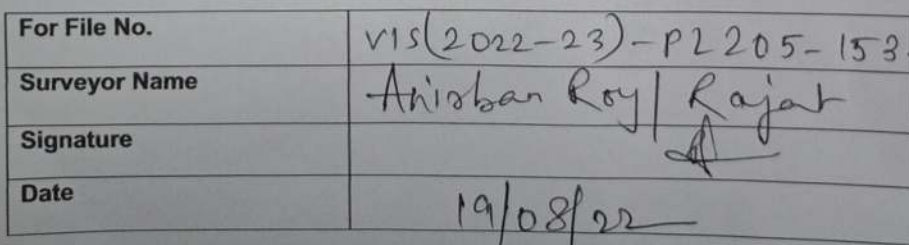 For File No. VIS(2022-23)-PL205-153
Surveyor Name Anirban Roy | Rajat
Signature
Date 19/08/22